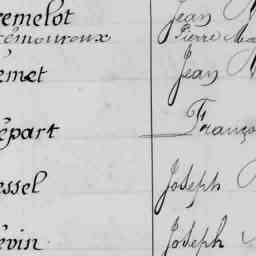 remelot Jean
rémouroux Pierre Ma
emet Jean
épart Franço
essel Joseph
évin Joseph